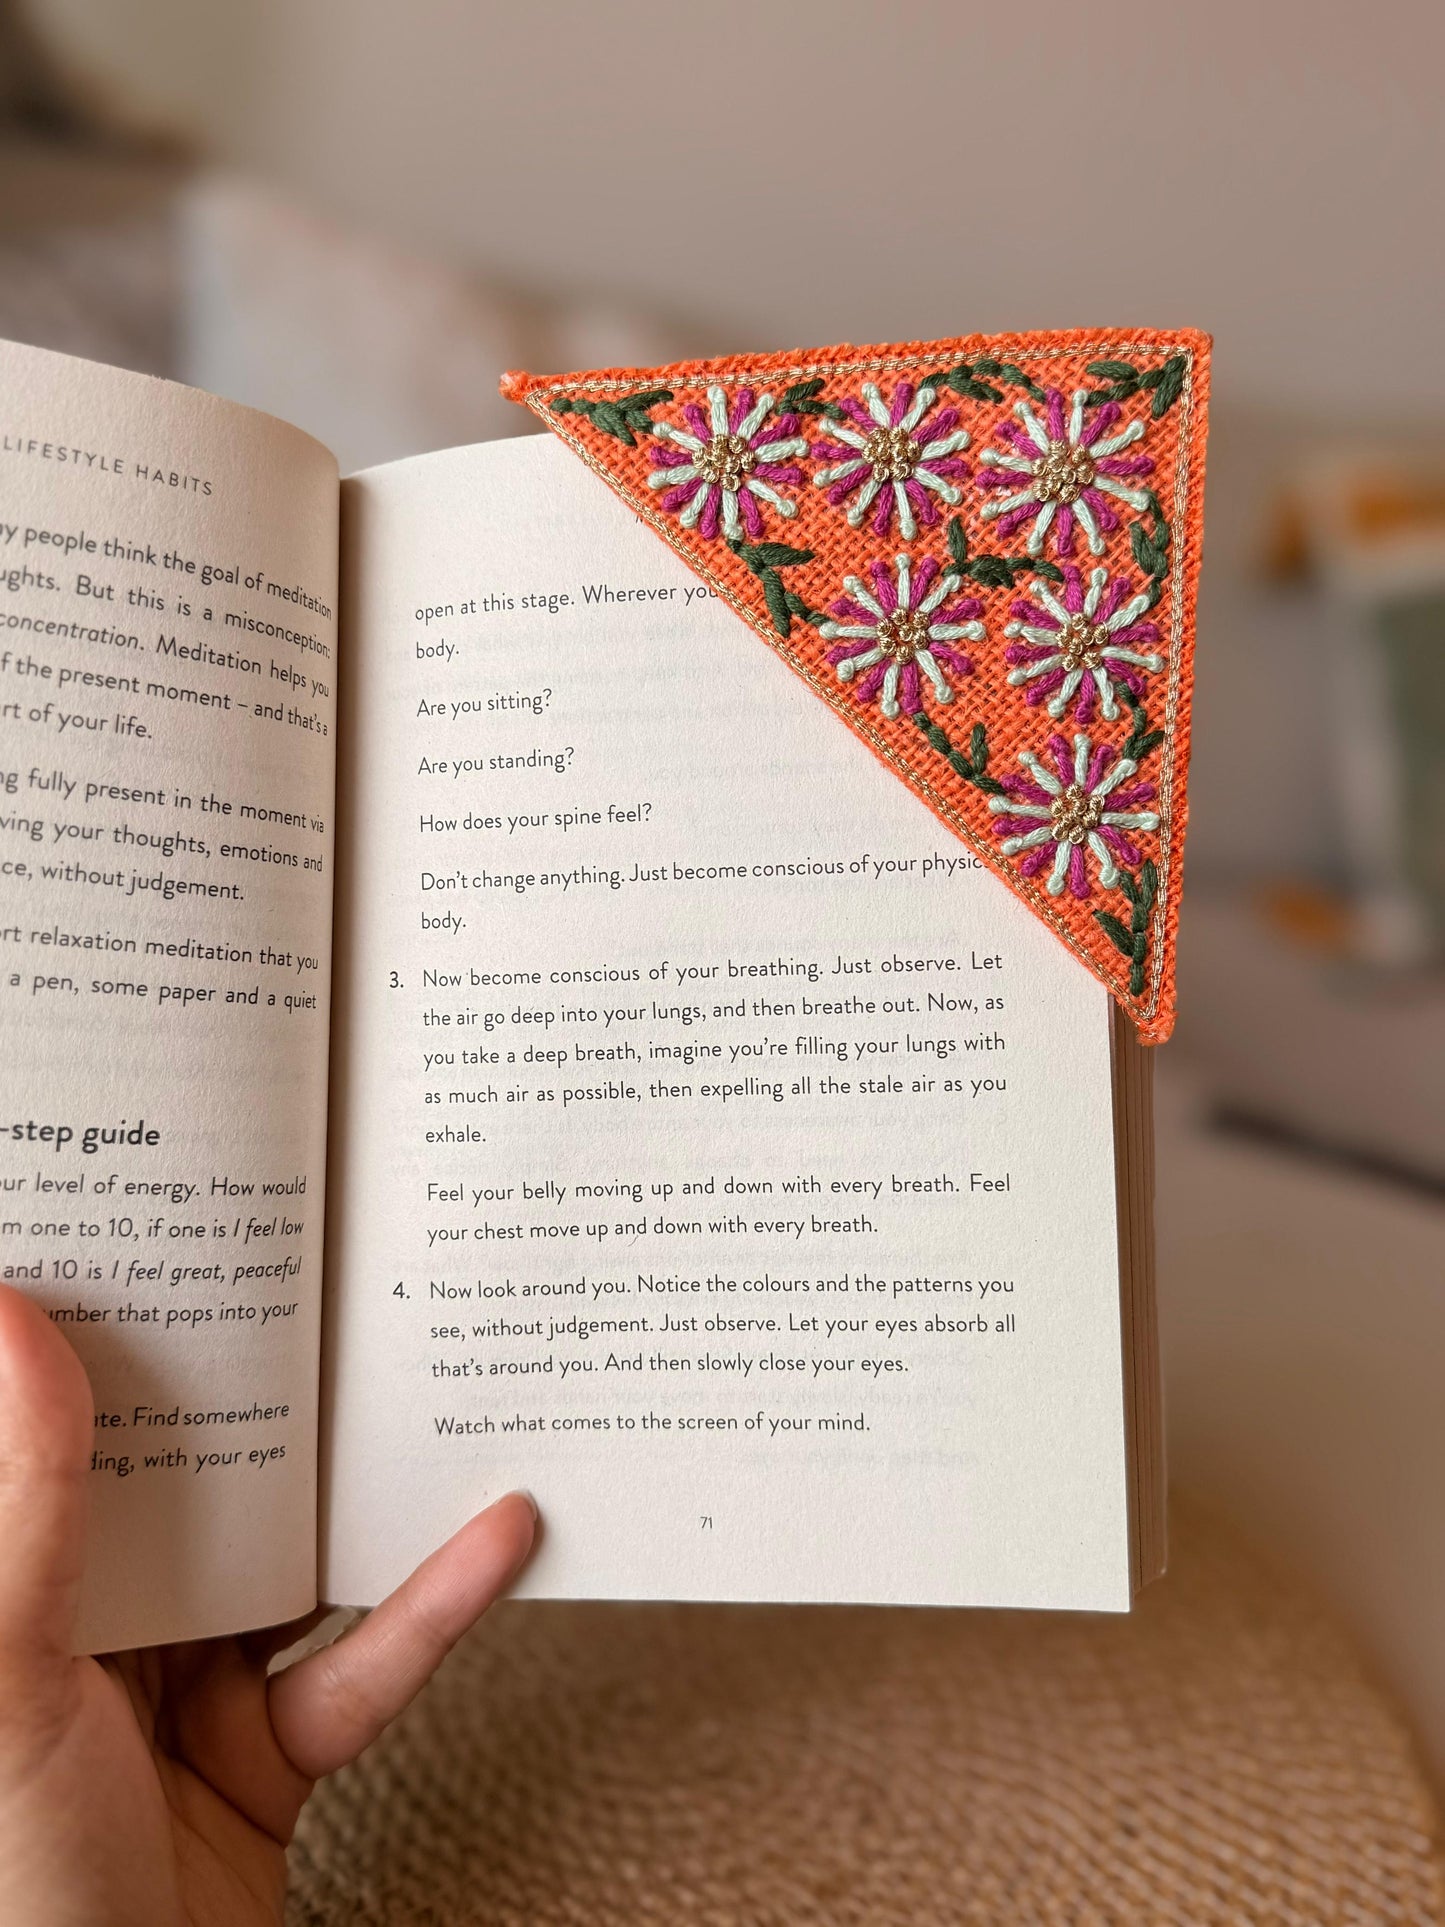 LIFESTYLE HABITS
people think the goal of meditation
But this is a misconception:
concentration. Meditation helps you
the present moment – and that's a
of your life.
fully present in the moment via
your thoughts, emotions and
without judgement.
relaxation meditation that you
a pen, some paper and a quiet
-step guide
level of energy. How would
one to 10, if one is I feel low
and 10 is I feel great, peaceful
that pops into your
Find somewhere
with your eyes
open at this stage. Wherever you
body.
Are you sitting?
Are you standing?
How does your spine feel?
Don't change anything. Just become conscious of your
body.
3. Now become conscious of your breathing. Just observe. Let
the air go deep into your lungs, and then breathe out. Now, as
you take a deep breath, imagine you're filling your lungs with
as much air as possible, then expelling all the stale air as you
exhale.
Feel your belly moving up and down with every breath. Feel
your chest move up and down with every breath.
4. Now look around you. Notice the colours and the patterns you
see, without judgement. Just observe. Let your eyes absorb all
that's around you. And then slowly close your eyes.
Watch what comes to the screen of your mind.
71